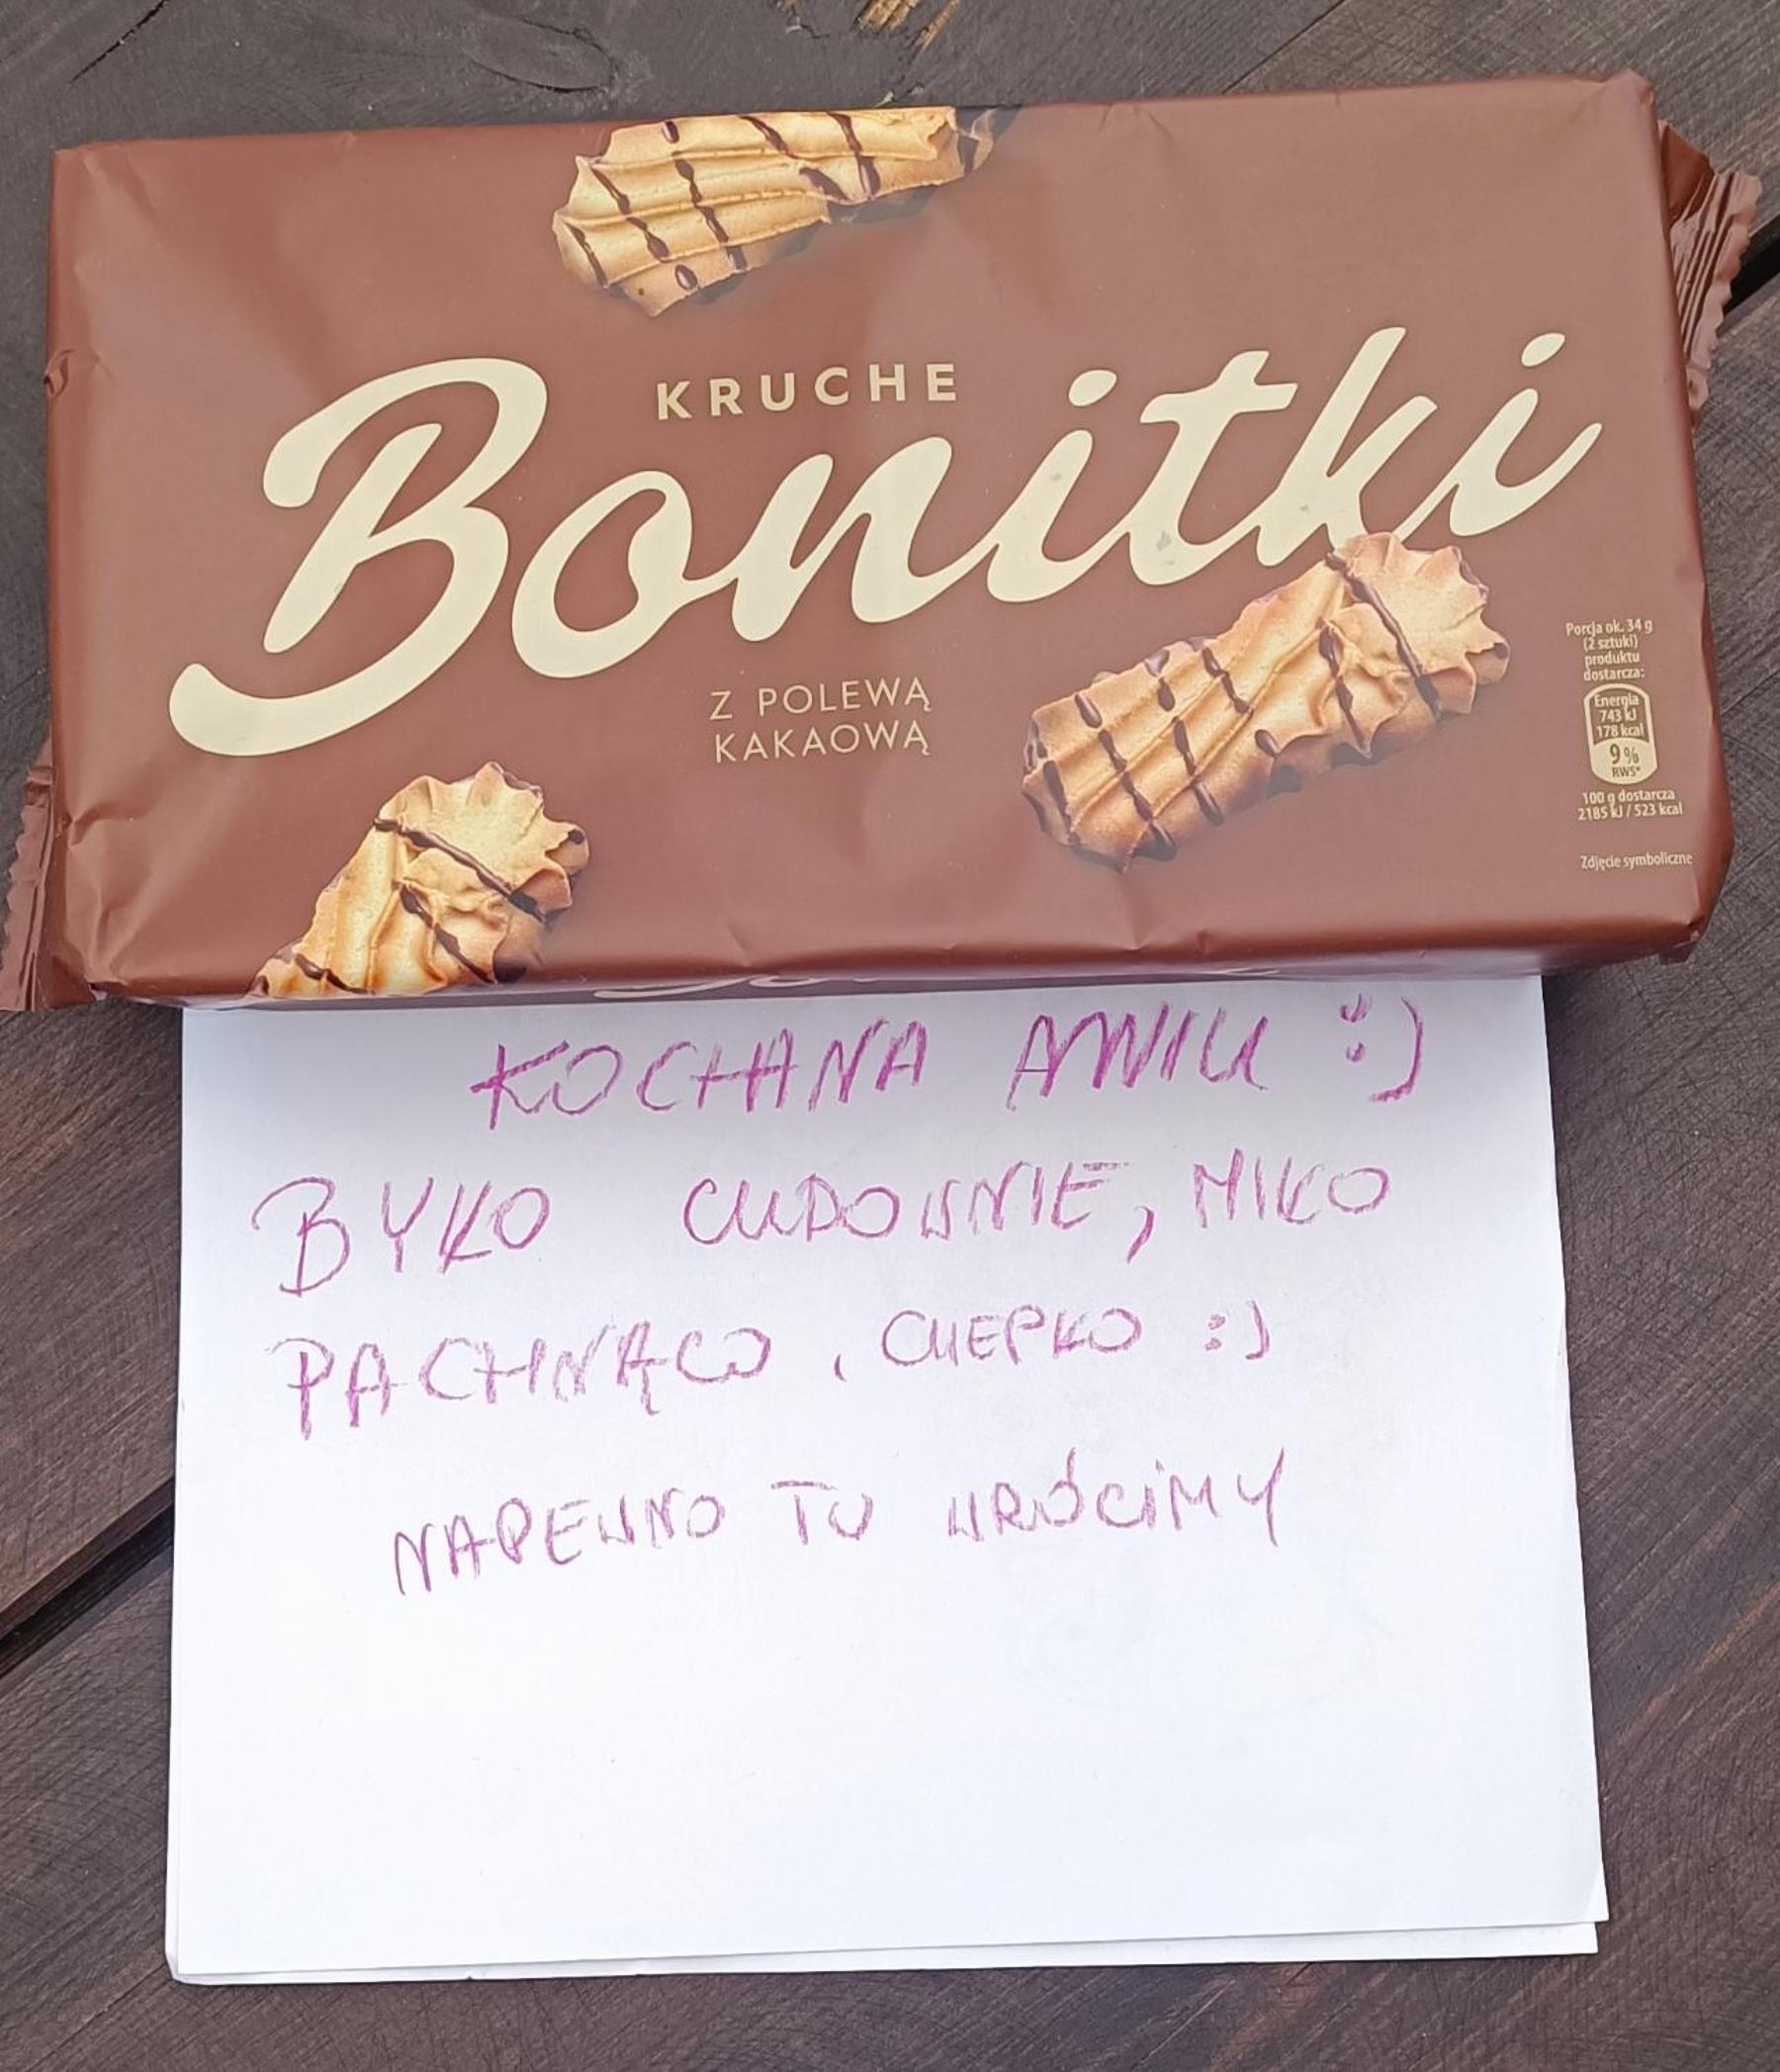 KRUCHE
Bonitki
Z POLEWĄ
KAKAOWĄ
Porcja ok. 34 g
(2 sztuki)
produktu
dostarcza:
Energia
743 kJ
178 kcal
9%
RWS*
100 g dostarcza
2185 kJ / 523 kcal
Zdjęcie symboliczne
KOCHANA ANIU :)
BYŁO CUDOWNIE, MIŁO
PACHNĄCO, CIEPŁO :)
NAPEWNO TU WRÓCIMY